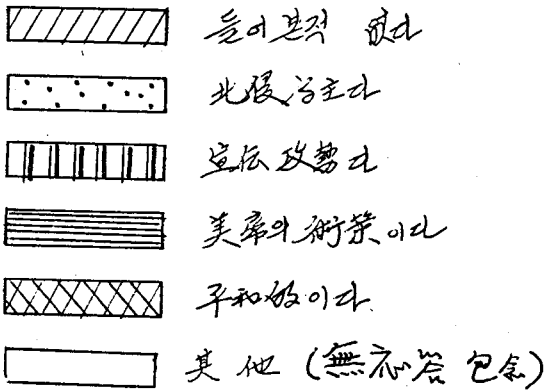 들어본적 없다
北侵
宣伝攻勢다
美帝의 術策이다
平和的이다.
其他 (無応答 包含)